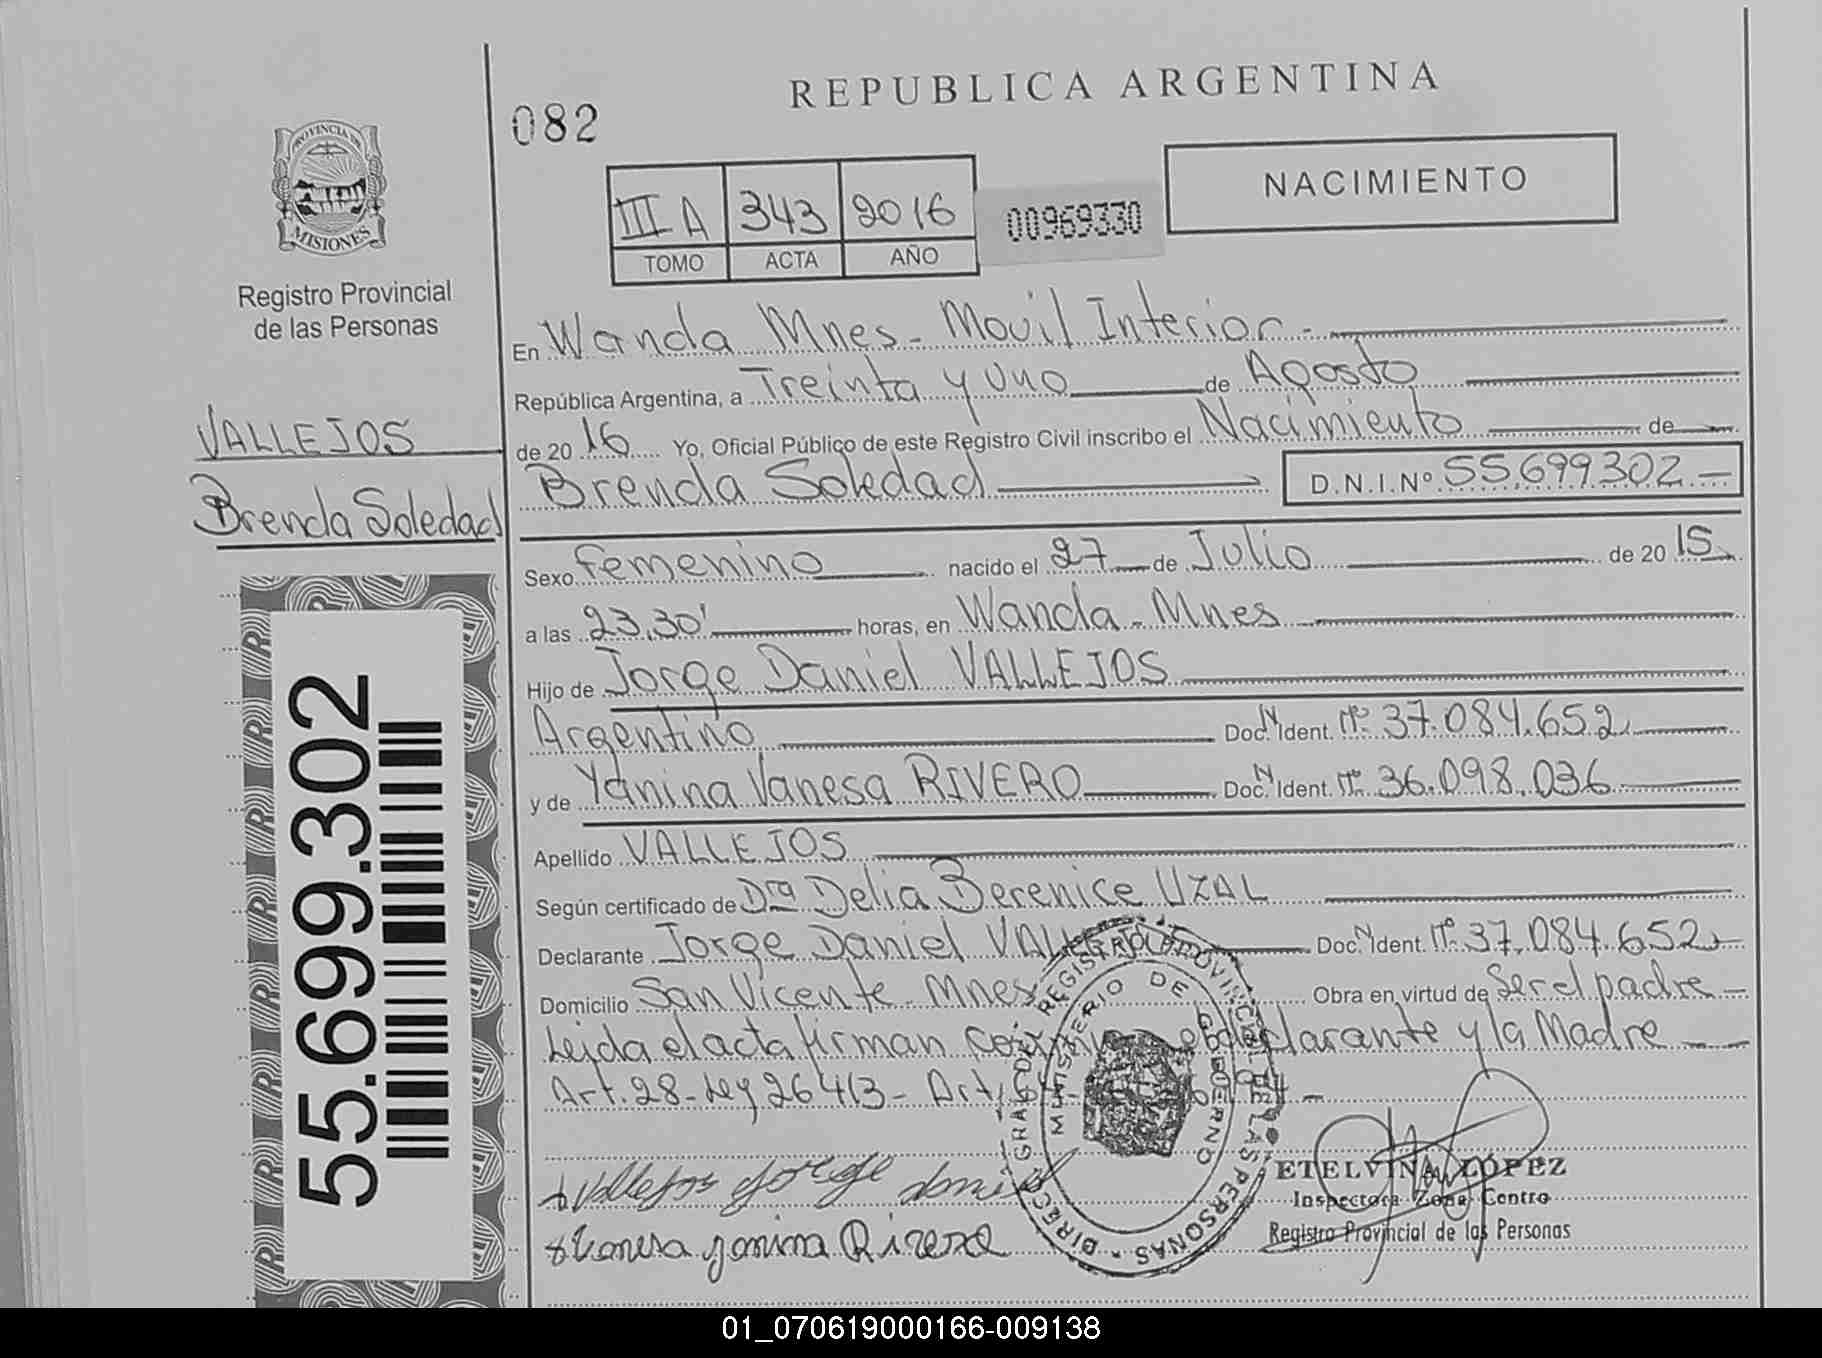 REPUBLICA ARGENTINA
082
PROVINCIA DE
MISIONES
Registro Provincial
de las Personas
III A 343 2016
TOMO ACTA AÑO
00969330
NACIMIENTO
VALLEJOS
Brenda Soledad
55.699.302
En Wanda Mnes - Movil Interior -
República Argentina, a Treinta y uno de Agosto
de 20 16 Yo, Oficial Público de este Registro Civil inscribo el Nacimiento de
Brenda Soledad D.N.I.Nº 55.699302 -
Sexo Femenino nacido el 27 de Julio de 20 15
a las 23,30' horas, en Wanda - Mnes
Hijo de Jorge Daniel VALLEJOS
Argentino Doc. N Ident. Nº 37.084.652
y de Yanina Vanesa RIVERO Doc. N Ident. Nº 36.098.036
Apellido VALLEJOS
Según certificado de Dra Delia Berenice UZAL
Declarante Jorge Daniel Doc. N Ident. Nº 37.084.652
Domicilio San Vicente - Mnes Obra en virtud de Ser el padre -
Leida el acta firman declarante y la Madre
Art. 28 - Ley 26413 - Art.
Vallejos Jorge daniel
Vanesa yanina Rivero
DIREC. GRAL. DEL REGISTRO PROVINCIAL DE LAS PERSONAS
MINISTERIO DE GOBIERNO
ETELVINA LOPEZ
Inspectora Zona Centro
Registro Provincial de las Personas
01_070619000166-009138